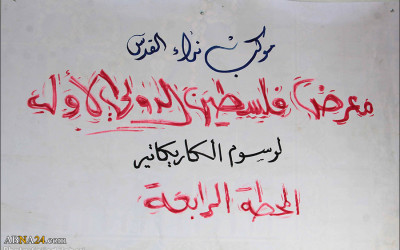 موكب نداء القدس
معرض فلسطين الدولي الأول
لرسوم الكاريكاتير
المحطة الرابعة
ABNA24.com